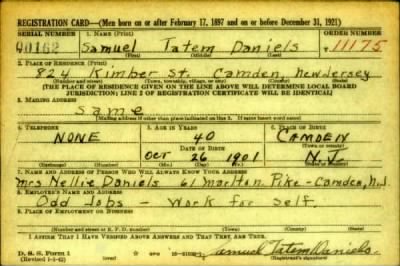 REGISTRATION CARD—(Men born on or after February 17, 1897 and on or before December 31, 1921)
SERIAL NUMBER 1. NAME (Print) ORDER NUMBER
Samuel Tatem Daniels 11175
(First) (Middle) (Last)
2. PLACE OF RESIDENCE (Print)
824 Kimber St. Camden, New Jersey
(Number and street) (Town, township, village, or city) (County) (State)
[THE PLACE OF RESIDENCE GIVEN ON THE LINE ABOVE WILL DETERMINE LOCAL BOARD
JURISDICTION; LINE 2 OF REGISTRATION CERTIFICATE WILL BE IDENTICAL]
3. MAILING ADDRESS
Same
[Mailing address if other than place indicated on line 2. If same insert word same]
4. TELEPHONE 5. AGE IN YEARS 6. PLACE OF BIRTH
NONE 40 CAMDEN
DATE OF BIRTH (Town or county)
Oct 26 1901 N.J.
(Exchange) (Number) (Mo.) (Day) (Yr.) (State or country)
7. NAME AND ADDRESS OF PERSON WHO WILL ALWAYS KNOW YOUR ADDRESS
Mrs Nellie Daniels 61 Marlton Pike - Camden, N.J.
8. EMPLOYER'S NAME AND ADDRESS
Odd Jobs - Work for Self.
9. PLACE OF EMPLOYMENT OR BUSINESS
(Number and street or R. F. D. number) (Town) (County) (State)
I AFFIRM THAT I HAVE VERIFIED ABOVE ANSWERS AND THAT THEY ARE TRUE.
D. S. S. Form 1 Samuel Tatem Daniels